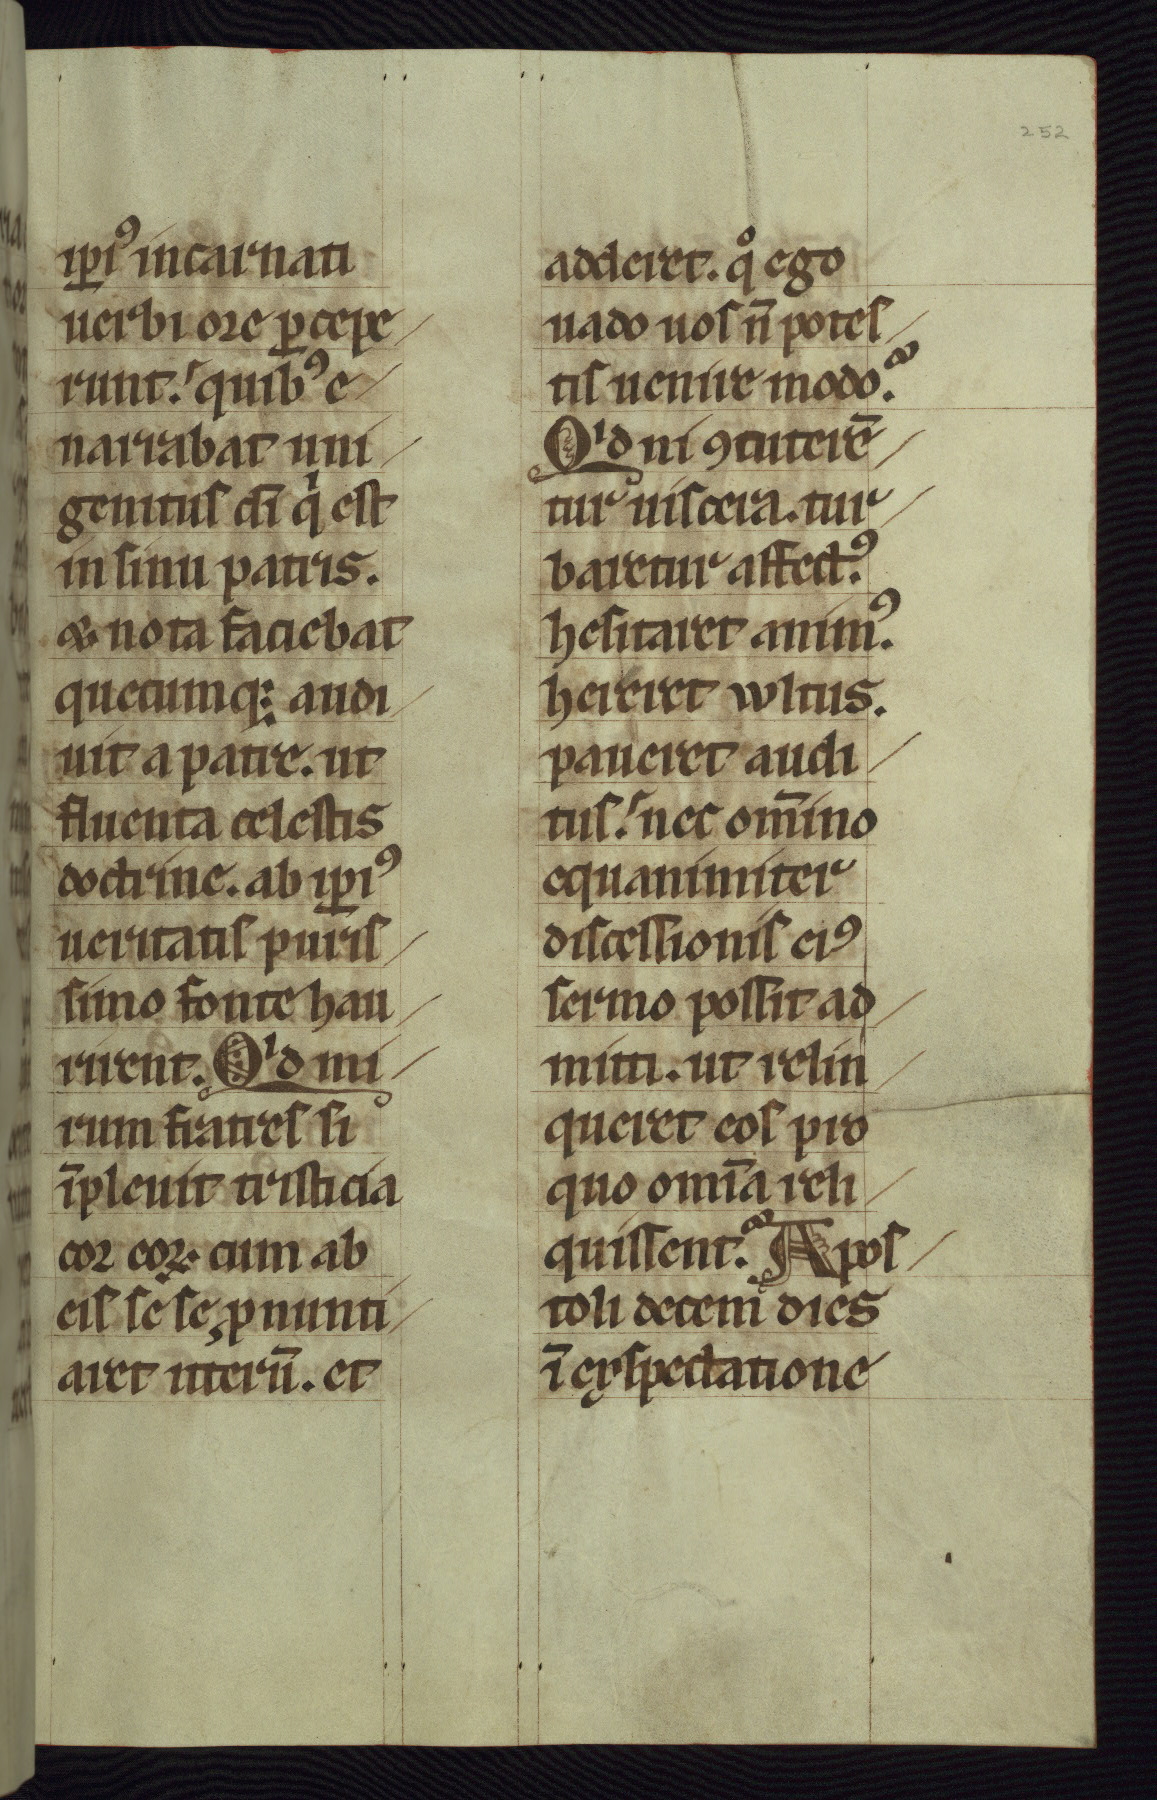 252
ip̄iꝰ incarnati
uerbi ore p̱cepe/
runt. quibꝰ e/
narrabat uni/
genitus dī qͥ est
in sinu patris.
& nota faciebat
quecumq; audi/
uit a patre. ut
fluenta celestis
doctrine. ab ip̄iꝰ
ueritatis puris/
simo fonte hau/
rirent. Qͥd mi/
rum fratres si
īpleuit tristicia
cor eoꝝ. cum ab
eis se se ꝓnunti/
aret iterū. et
adderet. qͦ ego
uado uos n̄ potes/
tis uenire modo.
Qͥd ni ꝯcuterē/
tur uiscera. tur/
baretur affectꝰ.
hesitaret animꝰ.
hereret wltus.
paueret audi/
tus. nec om̄ino
equanimiter
discessionis eiꝰ
sermo possit ad/
mitti. ut relin/
queret eos pro
quo omīa reli/
quissent. Apos/
toli decem dies
ī exspectatione